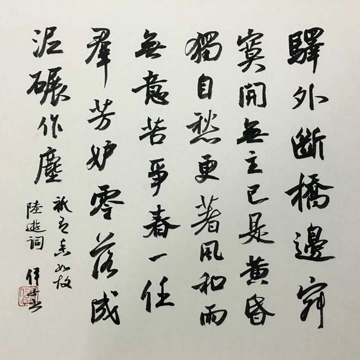 驛外斷橋邊寂
寞開無主已是黃昏
獨自愁更著風和雨
無意苦爭春一任
羣芳妒零落成
泥碾作塵
衹有香如故
陸游詞